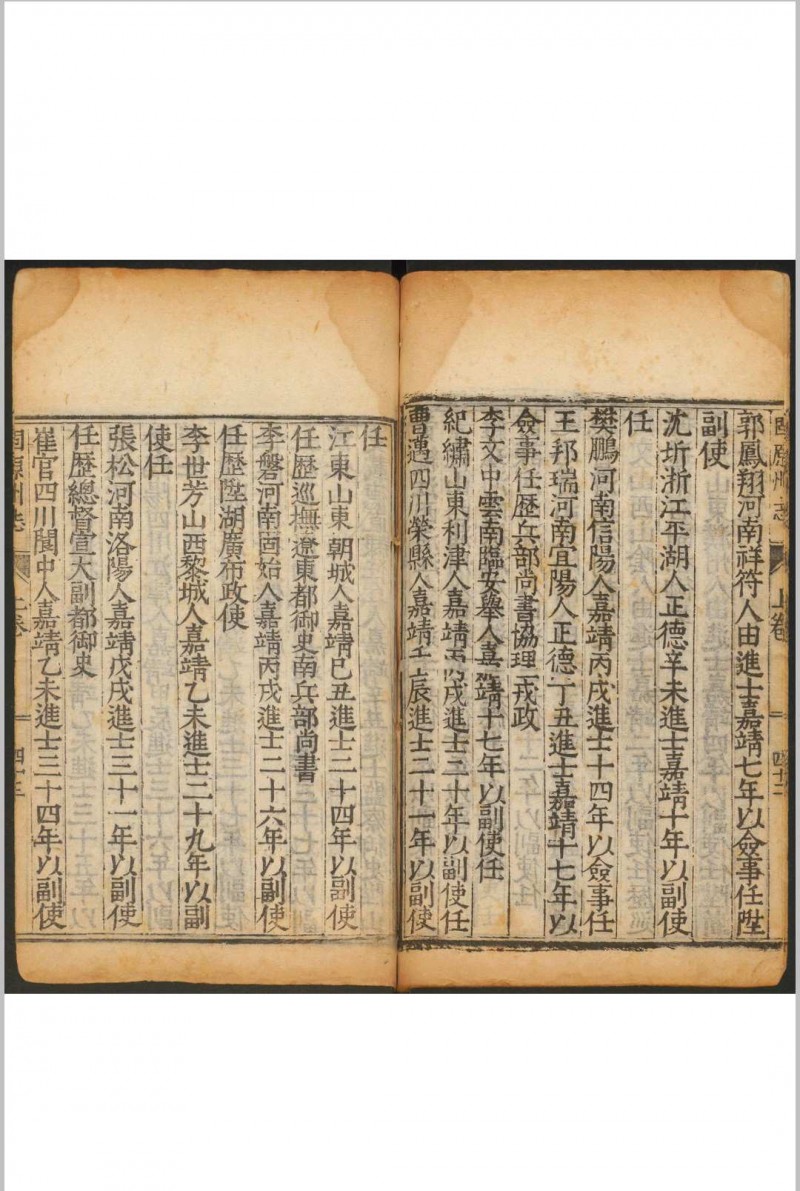 固原州志
上卷
四十二
郭鳳翔河南祥符人由進士嘉靖七年以僉事任陞
副使
沈圻浙江平湖人正德辛未進士嘉靖十年以副使
任
樊鵬河南信陽人嘉靖丙戌進士十四年以僉事任
王邦瑞河南宜陽人正德丁丑進士嘉靖十七年以
僉事任歷兵部尚書協理戎政
李文中雲南臨安舉人嘉靖十七年以副使任
紀繡山東利津人嘉靖丙戌進士二十年以副使任
曹邁四川榮縣人嘉靖壬辰進士二十一年以副使
任
江東山東朝城人嘉靖己丑進士二十四年以副使
任歷巡撫遼東都御史南兵部尚書
李磐河南固始人嘉靖丙戌進士二十六年以副使
任歷陞湖廣布政使
李世芳山西黎城人嘉靖乙未進士二十九年以副
使任
張松河南洛陽人嘉靖戊戌進士三十一年以副使
任歷總督宣大副都御史
崔官四川閬中人嘉靖乙未進士三十四年以副使
固原州志
上卷
四十三